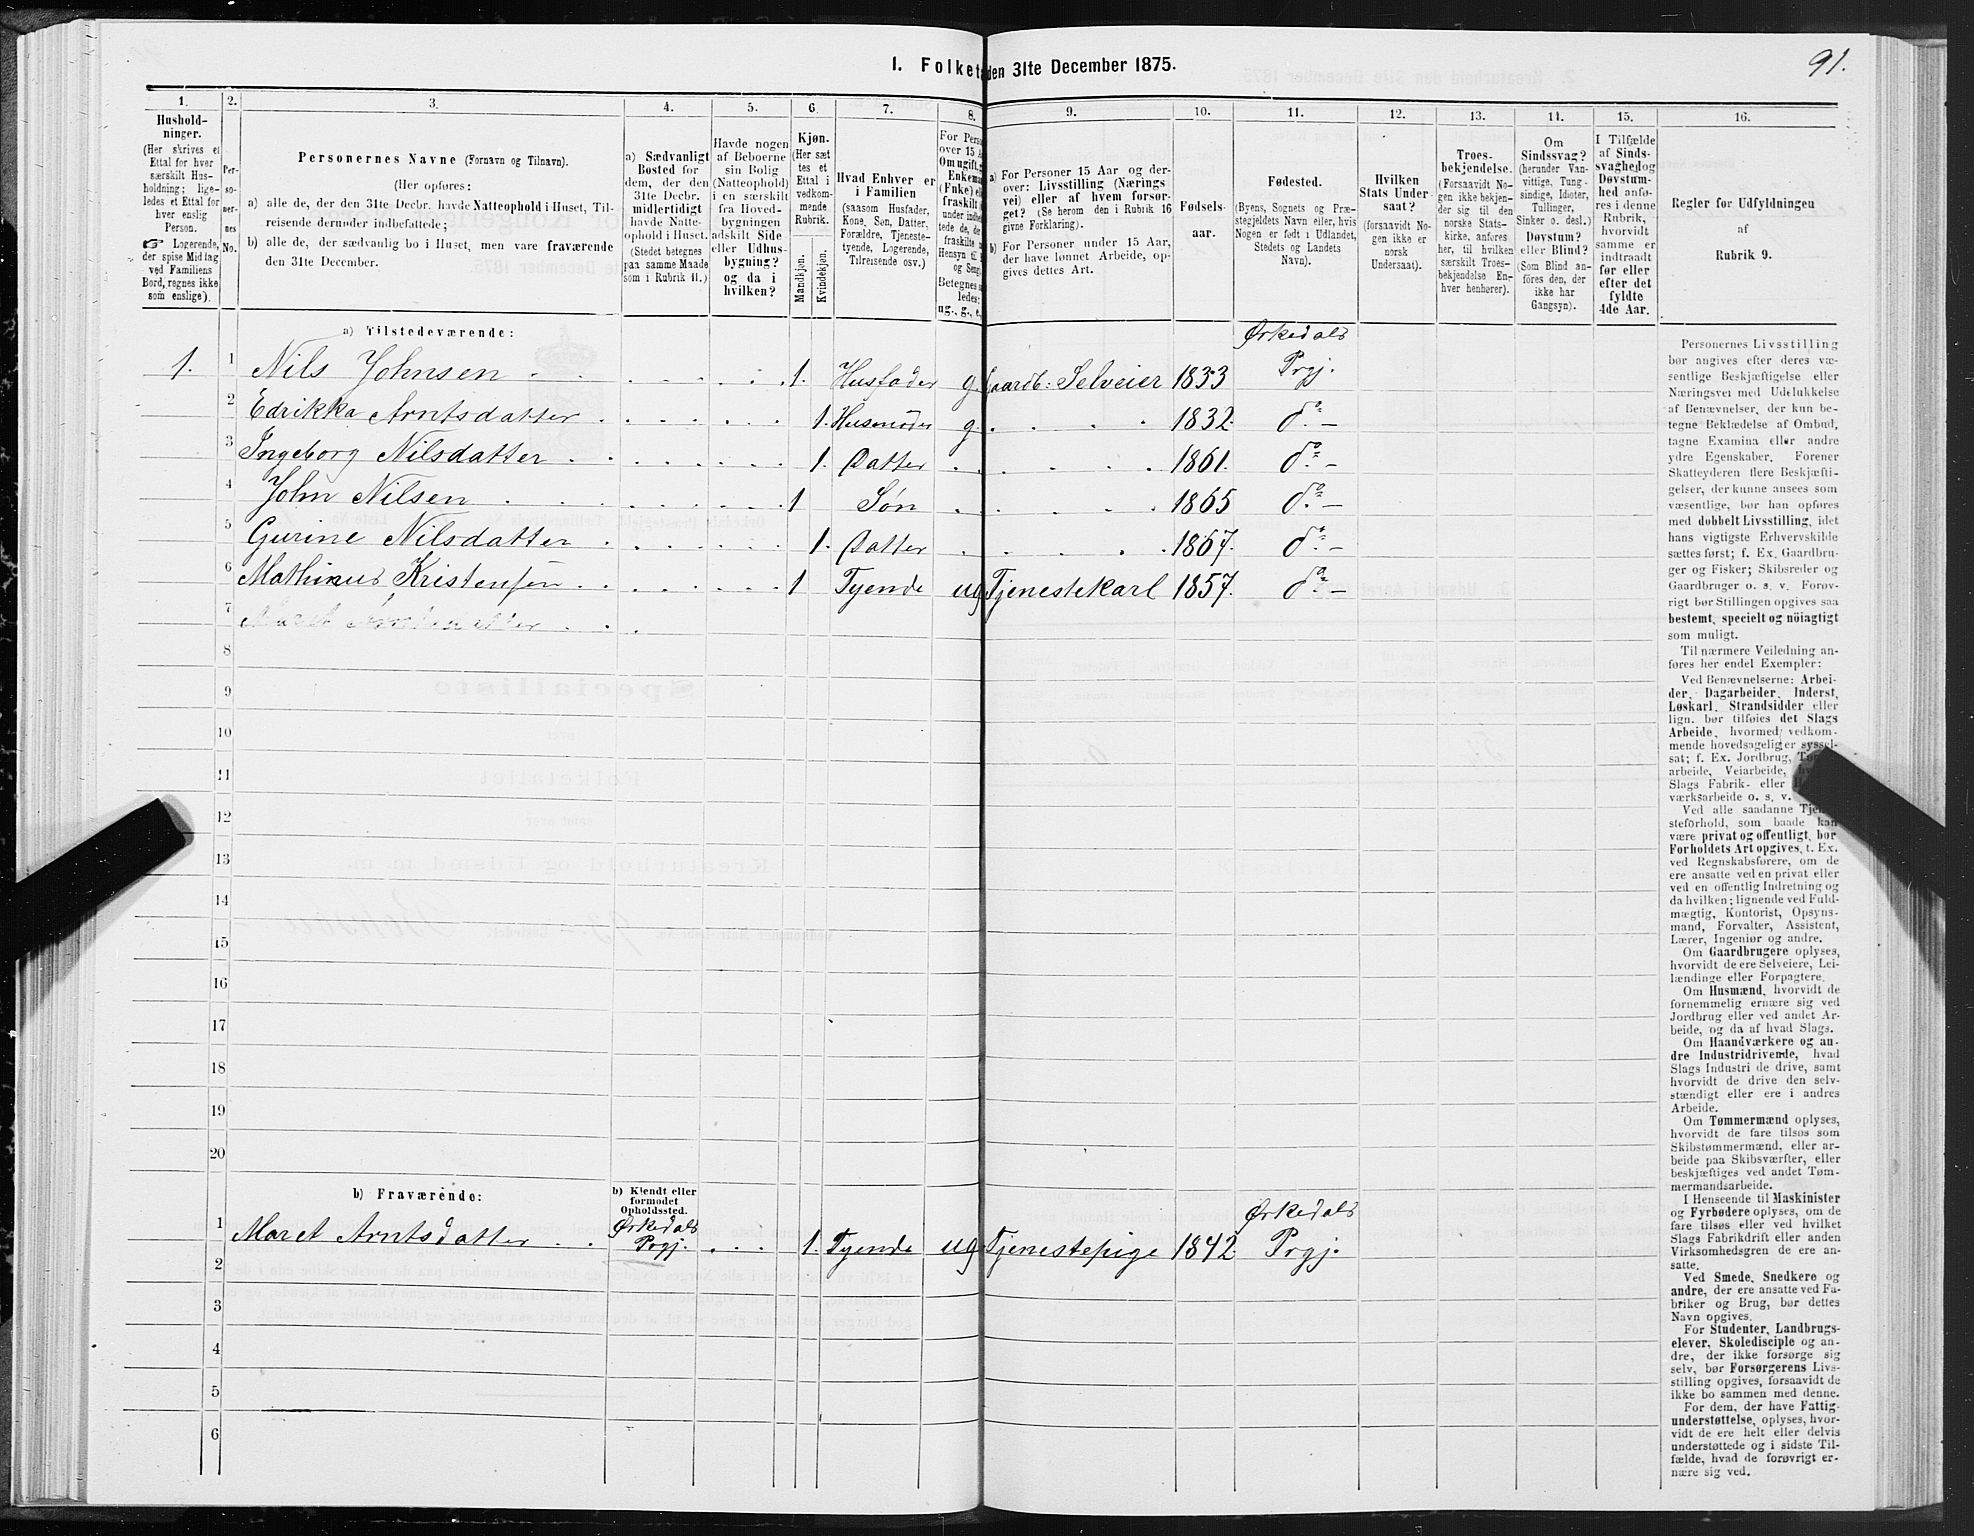 1. Folket den 31te December 1875.
91.
1.
Hushold-
ninger.
(Her skrives et
Ettal for hver
særskilt Hus-
holdning; lige-
ledes et Ettal for
hver enslig
Person.
☞ Logerende,
der spise Middag
ved Familiens
Bord, regnes ikke
som enslige).
2.
Per-
so-
ner-
nes
No.
3.
Personernes Navne (Fornavn og Tilnavn).
(Her opføres:
a) alle de, der den 31te Decbr. havde Natteophold i Huset, Til-
reisende derunder indbefattede;
b) alle de, der sædvanlig bo i Huset, men vare fraværende
den 31te December.
4.
a) Sædvanligt
Bosted for
dem, der den
31te Decbr.
midlertidigt
havde Natte-
ophold i Huset.
(Stedet betegnes
paa samme Maade
som i Rubrik 11.)
5.
Havde nogen
af Beboerne
sin Bolig
(Natteophold)
i en særskilt
fra Hoved-
bygningen
adskilt Side-
eller Udhus-
bygning?
og da i
hvilken?
6.
Kjøn.
(Her sæt-
tes et
Ettal i
vedkom-
mende
Rubrik.
Mandkjøn.
Kvindekjøn.
7.
Hvad Enhver er
i Familien
(saasom Husfader,
Kone, Søn, Datter,
Forældre, Tjeneste-
tyende, Logerende,
Tilreisende osv.)
8.
For Perso
over 15 A
Om ugift, g
Enkema
(Enke) el
fraskilt
9.
a) For Personer 15 Aar og der-
over: Livsstilling (Nærings-
vei) eller af hvem forsør-
get? (Se herom den i Rubrik 16
givne Forklaring).
b) For Personer under 15 Aar,
der have lønnet Arbeide, op-
gives dettes Art.
10.
Fødsels-
aar.
11.
Fødested.
(Byens, Sognets og Præ-
stegjeldets Navn eller, hvis
Nogen er født i Udlandet,
Stedets og Landets
Navn).
12.
Hvilken
Stats Under-
saat?
(forsaavidt No-
gen ikke er
norsk
Undersaat).
13.
Troes-
bekjendelse.
(Forsaavidt No-
gen ikke bekjen-
der sig til den
norske Stats-
kirke, anføres
her, til hvilken
særskilt Troes-
bekjendelse En-
hver henhører).
14.
Om
Sindssvag?
(herunder Van-
vittige, Tung-
sindige, Idioter,
Tullinger,
Sinker o. desl.)
Døvstum?
eller Blind?
(Som Blind an-
føres den, der
ikke har
Gangsyn).
15.
I Tilfælde
af Sinds-
svaghed og
Døvstum-
hed anfø-
res i denne
Rubrik,
hvorvidt
samme er
indtraadt
før eller
efter det
fyldte
4de Aar.
16.
Regler for Udfyldningen
af
Rubrik 9.
a) Tilstedeværende:
1. 1 Nils Johnsen 1. Husfader g. Gaardb: Selveier 1833 Ørkedals Prgj.
2 Edrikka Arntsdatter 1. Husmoder g. 1832. do —
3 Ingeborg Nilsdatter 1. Datter 1861. do —
4 John Nilsen 1 Søn 1865 do —
5 Gurine Nilsdatter 1. Datter 1867. do —
6 Mathinus Kristensen 1 Tyende ug Tjenestekarl 1857. do —
7 Maret Arntsdatter
8
9
10
11
12
13
14
15
16
17
18
19
20
b) Fraværende:
b) Kjendt eller
formodet
Opholdssted.
1 Maret Arntsdatter Ørkedals Prgj. 1. Tyende ug Tjenestepige 1842. Ørkedals Prgj.
2
3
4
5
6
Personernes Livsstilling
bør angives efter deres væ-
sentlige Beskjæftigelse eller
Næringsvei med Udelukkelse
af Benævnelser, der kun be-
tegne Beklædelse af Ombud,
tagne Examina eller andre
ydre Egenskaber. Forener
Skatteyderen flere Beskjæfti-
gelser, der kunne ansees som
væsentlige, bør han opføres
med dobbelt Livsstilling, idet
hans vigtigste Erhvervskilde
sættes først; f. Ex. Gaardbru-
ger og Fisker; Skibsreder og
Gaardbruger o. s. v. Forøv-
rigt bør Stillingen opgives saa
bestemt, specielt og nöiagtigt
som muligt.
Til nærmere Veiledning an-
føres her endel Exempler:
Ved Benævnelserne: Arbei-
der, Dagarbeider, Inderst,
Løskarl, Strandsidder eller
lign. bør tilføies det Slags
Arbeide, hvormed vedkom-
mende hovedsagelig er syssel-
sat; f. Ex. Jordbrug,
arbeide, Veiarbeide,
Slags Fabrik- eller
værksarbeide o. s. v.
Ved alle saadanne Tjene-
steforhold, som baade kan
være privat og offentligt, bør
Forholdets Art opgives, t. Ex.
ved Regnskabsførere, om de
ere ansatte ved en privat eller
ved en offentlig Indretning og
da hvilken; lignende ved Fuld-
mægtig, Kontorist, Opsyns-
mand, Forvalter, Assistent,
Lærer, Ingeniør og andre.
Om Gaardbrugere oplyses,
hvorvidt de ere Selveiere, Lei-
lændinge eller Forpagtere.
Om Husmænd, hvorvidt de
fornemmelig ernære sig ved
Jordbrug eller ved andet Ar-
beide, og da af hvad Slags.
Om Haandværkere og an-
dre Industridrivende, hvad
Slags Industri de drive, samt
hvorvidt de drive den selv-
stændigt eller ere i andres
Arbeide.
Om Tømmermænd oplyses,
hvorvidt de fare tilsøs som
Skibstømmermænd, eller ar-
beide paa Skibsværfter, eller
beskjæftiges ved andet Tøm-
mermandsarbeide.
I Henseende til Maskinister
og Fyrbødere oplyses, om de
fare tilsøs eller ved hvilket
Slags Fabrikdrift eller anden
Virksomhedsgren de ere an-
satte.
Ved Smede, Snedkere og
andre, der ere ansatte ved Fa-
briker og Brug, bør dettes
Navn opgives.
For Studenter, Landbrugs-
elever, Skoledisciple og an-
dre, der ikke forsørge sig
selv, bør Forsørgerens Livs-
stilling opgives, forsaavidt de
ikke bo sammen med denne.
For dem, der have Fattig-
understøttelse, oplyses, hvor-
vidt de ere helt eller delvis
understøttede og i sidste Til-
fælde, hvad de forøvrigt er-
nære sig ved.